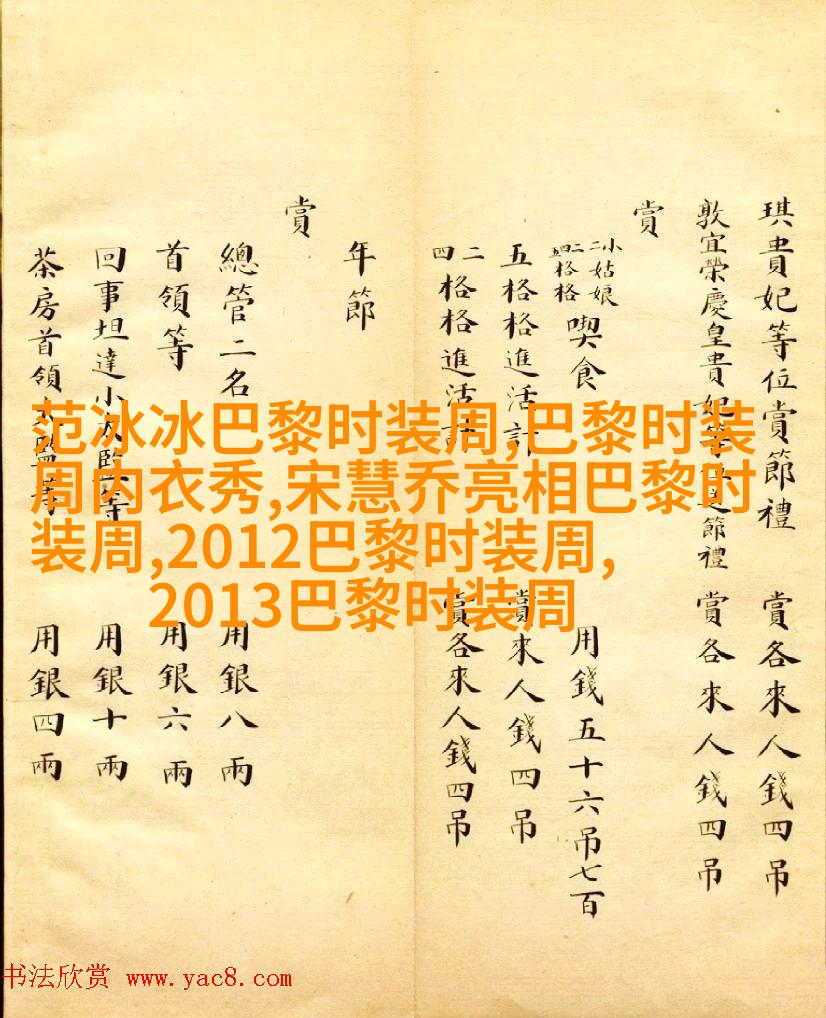 琪貴妃等位賞節禮 賞各來人錢四吊
敦宜榮慶皇貴妃等位送節禮 賞各來人錢四吊
賞
小姑娘
格格 喫食 用錢五十六吊七百
五格格進活計 賞來人錢四吊
二四格格進活計 賞各來人錢四吊
年節
賞
總管二名 用銀八兩
首領等 用銀六兩
回事坦達小太監等 用銀十兩
茶房首領太監等 用銀四兩
范冰冰巴黎时装周,巴黎时装
周内衣秀,宋慧乔亮相巴黎时
装周,2012巴黎时装周,
2013巴黎时装周
书法欣赏 www.yac8.com